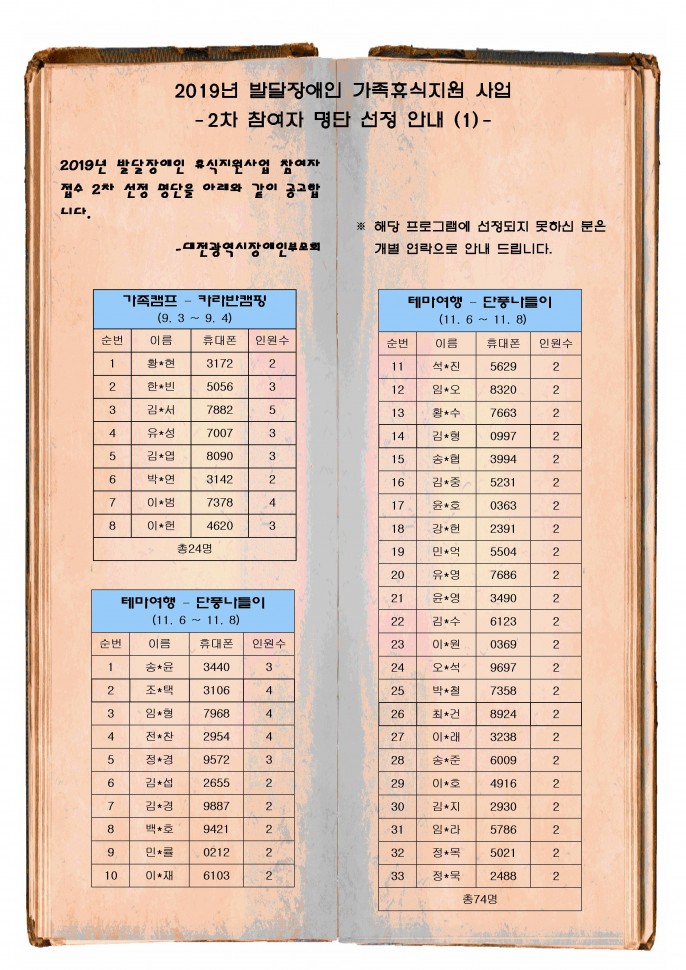 2019년 발달장애인 가족휴식지원 사업
-2차 참여자 명단 선정 안내 (1)-
2019년 발달장애인 휴식지원사업 참여자
접수 2차 선정 명단을 아래와 같이 공고합
니다.
-대전광역시장애인부모회
※ 해당 프로그램에 선정되지 못하신 분은
개별 연락으로 안내 드립니다.
가족캠프 - 카라반캠핑
(9. 3 ~ 9. 4)
순번 이름 휴대폰 인원수
1 황*현 3172 2
2 한*빈 5056 3
3 김*서 7882 5
4 유*성 7007 3
5 김*엽 8090 3
6 박*연 3142 2
7 이*범 7378 4
8 이*헌 4620 3
총24명
테마여행 - 단풍나들이
(11. 6 ~ 11. 8)
순번 이름 휴대폰 인원수
1 송*윤 3440 3
2 조*택 3106 4
3 임*형 7968 4
4 전*찬 2954 4
5 정*경 9572 3
6 김*섭 2655 2
7 김*경 9887 2
8 백*호 9421 2
9 민*률 0212 2
10 이*재 6103 2
테마여행 - 단풍나들이
(11. 6 ~ 11. 8)
순번 이름 휴대폰 인원수
11 석*진 5629 2
12 임*오 8320 2
13 황*수 7663 2
14 김*형 0997 2
15 송*협 3994 2
16 김*중 5231 2
17 윤*호 0363 2
18 강*헌 2391 2
19 민*억 5504 2
20 유*영 7686 2
21 윤*영 3490 2
22 김*수 6123 2
23 이*원 0369 2
24 오*석 9697 2
25 박*철 7358 2
26 최*건 8924 2
27 이*래 3238 2
28 송*준 6009 2
29 이*호 4916 2
30 김*지 2930 2
31 임*라 5786 2
32 정*목 5021 2
33 정*묵 2488 2
총74명